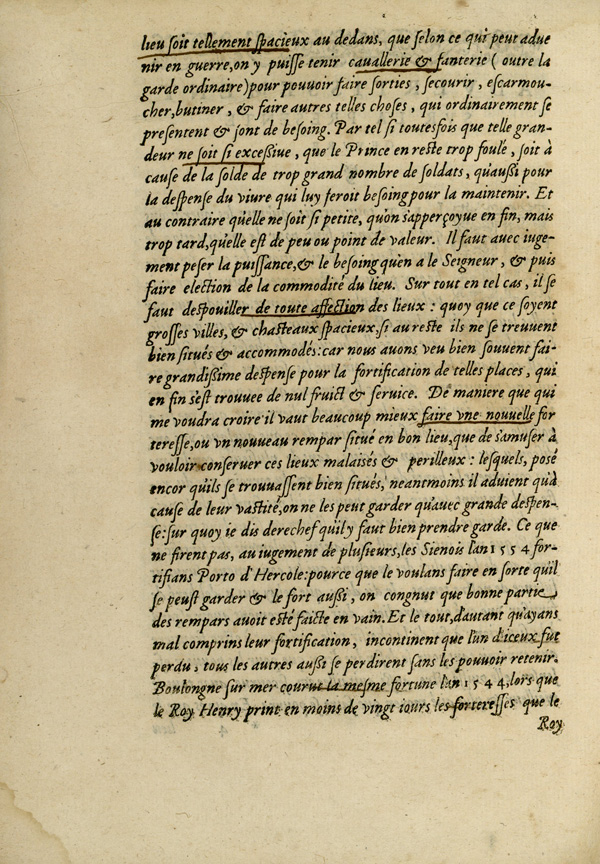 lieu ſoit tellement ſpacieux au dedans, que ſelon ce qui peut adue
nir en guerre,on y puiſſe tenir cauallerie & fanterie ( outre la
garde ordinaire)pour pouuoir faire ſorties , ſecourir , eſcarmou-
cher,butiner , & faire autres telles choſes , qui ordinairement se
preſentent & ſont de beſoing. Par tel ſi toutesfois que telle gran-
deur ne ſoit ſi exceſſiue , que le Prince en reſte trop foulé , ſoit à
cauſe de la ſolde de trop grand nombre de ſoldats, qu'auſſi pour
la deſpenſe du viure qui luy feroit beſoing pour la maintenir. Et
au contraire qu'elle ne ſoit ſi petite, qu'on s'apperçoyue en fin, mais
trop tard,qu'elle eſt de peu ou point de valeur. Il faut auec iuge-
ment peſer la puiſſance,& le beſoing qu'en a le Seigneur, & puis
faire election de la commodité du lieu. Sur tout en tel cas, il ſe
faut deſpouiller de toute affection des lieux : quoy que ce ſoyent
groſſes villes, & chaſteaux ſpacieux,ſi au reſte ils ne ſe treuuent
bien ſitués & accommodés:car nous auons veu bien ſouuent fai-
re grandiſſime deſpenſe pour la fortification de telles places, qui
en fin s'eſt trouuee de nul fruict & ſeruice. De maniere que qui
me voudra croire il vaut beaucoup mieux faire vne nouuelle for
tereſſe,ou vn nouueau rempar ſitué en bon lieu,que de s'amuſer à
vouloir conſeruer ces lieux malaiſés & perilleux : leſquels, poſé
encor qu'ils ſe trouuaſſent bien ſitués, neantmoins il aduient qu'à
cauſe de leur vaſtité,on ne les peut garder qu'auec grande deſpen-
ſe:ſur quoy ie dis derechef qu'il y faut bien prendre garde. Ce que
ne firent pas, au iugement de pluſieurs,les Sienois l'an 1 5 5 4 for-
tifians Porto d'Hercole:pource que le voulans faire en ſorte qu'il
ſe peuſt garder & le fort auſſi, on congnut que bonne partie
des rempars auoit eſté faicte en vain.Et le tout,d'autant qu'ayans
mal comprins leur fortification, incontinent que l'un d'iceux fut
perdu, tous les autres auſſi ſe perdirent ſans les pouuoir retenir.
Boulongne ſur mer courut la meſme fortune l'an 1 5 4 4,lors que
le Roy Henry print en moins de vingt iours les fortereſſes que le
Roy